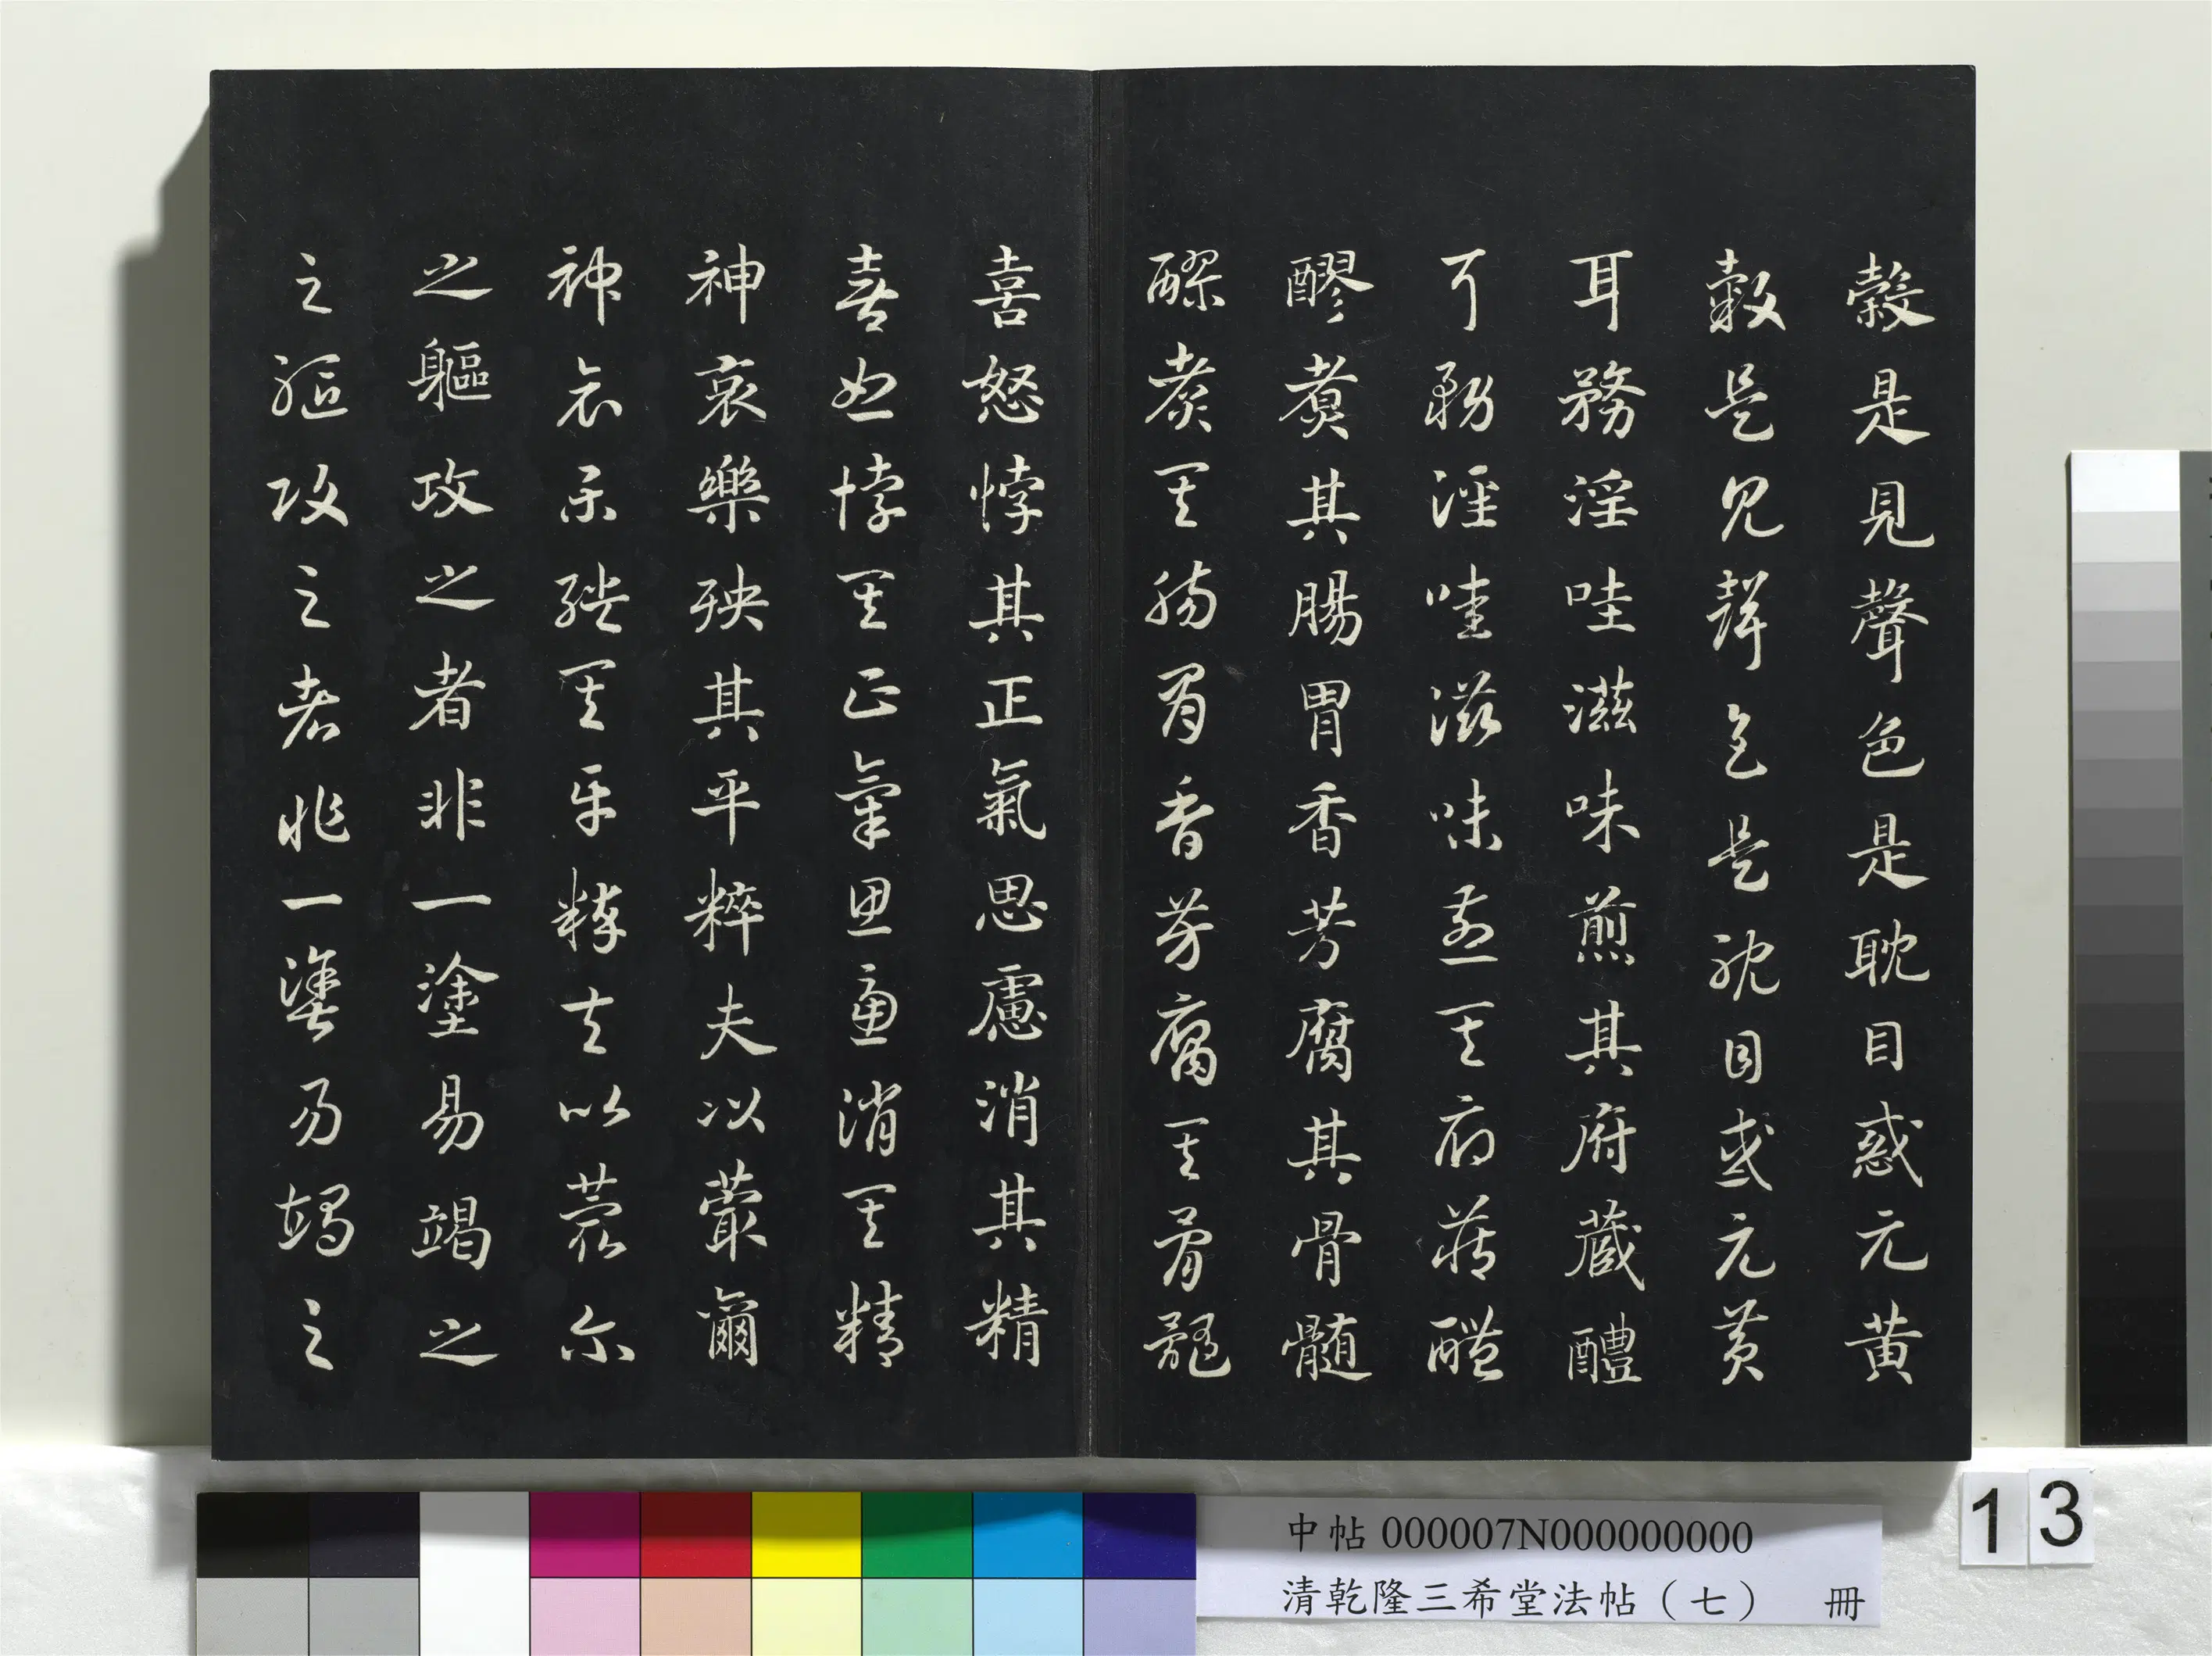 穀是見聲色是耽目惑元黃
穀是見聲色是耽目惑元黃
耳務淫哇滋味煎其府蔵醴
耳務淫哇滋味煎其府蔵醴
醪煑其腸胃香芳腐其骨髓
醪煑其腸胃香芳腐其骨髓
喜怒悖其正氣思慮消其精
喜怒悖其正氣思慮消其精
神哀樂殃其平粹夫以蕞爾
神哀樂殃其平粹夫以蕞尔
之軀攻之者非一塗易竭之
之軀攻之者非一塗易竭之
中帖000007N000000000
清乾隆三希堂法帖（七） 冊
13